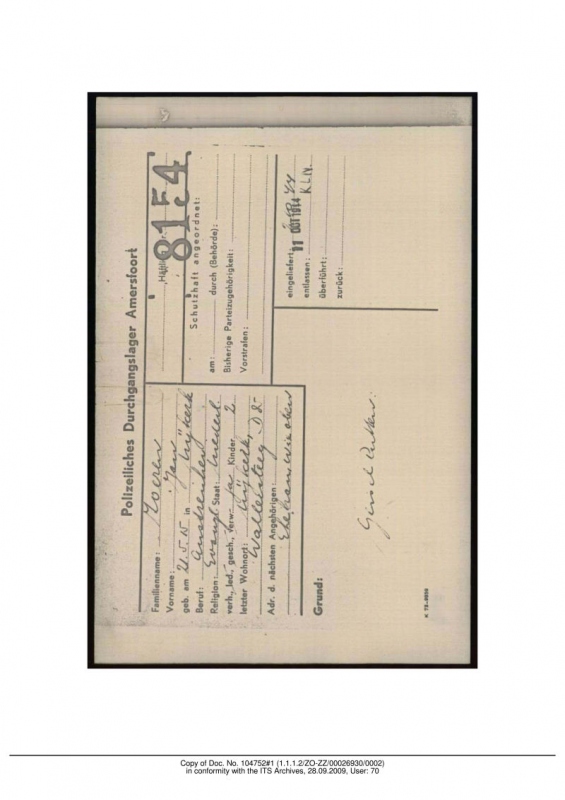 Polizeiliches Durchgangslager Amersfoort
Familienname:
Vorname: Jan
geb. am 21.5.15 in Nijkerk
Beruf: Anstreicher
Religion: Evangl. Staat: Niederl.
verh., led., gesch., verw.- ja Kinder 2
letzter Wohnort: Nijkerk,
D 2-
Adr. d. nächsten Angehörigen:
Ehefrau wie oben
Häftlings-Nr.
8154
Schutzhaft angeordnet:
am: durch (Behörde):
Bisherige Parteizugehörigkeit:
Vorstrafen:
eingeliefert:
11 OKT 1944
entlassen: K.L.N.
überführt:
zurück:
Grund:
K 73-8950
Copy of Doc. No. 104752#1 (1.1.1.2/ZO-ZZ/00026930/0002)
in conformity with the ITS Archives, 28.09.2009, User: 70